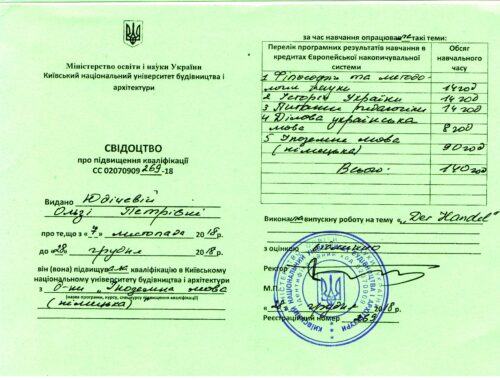 Міністерство освіти і науки України
Київський національний університет будівництва і
архітектури
СВІДОЦТВО
про підвищення кваліфікації
СС 02070909 269 -18
Видано Юдічевій
Ользі Петрівні
про те,що з «7» листопада 2018р.
до «28» грудня 2018р.
він (вона) підвищувала кваліфікацію в Київському
національному університету будівництва і архітектури
з д-ни „Іноземна мова
(назва програми, курсу, спеціаль підвищення кваліфікації)
(німецька)
за час навчання опрацювала такі теми:
Перелік програмних результатів навчання в
кредитах Європейської накопичувальної
системи
Обсяг
навчального
часу
1 Філософія та методо-
логія науки 14 год
2 Історія України 14 год
3 Питання педагогіки 14 год
4 Ділова українська
мова 8 год
5 Іноземна мова
(німецька) 90 год
Всього: 140 год
Виконала випускну роботу на тему „Der Handel"
з оцінкою відмінно
Ректор
М.П.
«28» грудня 2018 р.
Реєстраційний номер 269